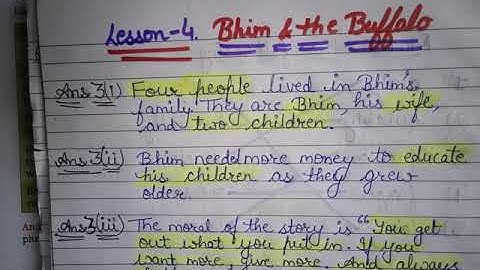 Lesson-4. Bhim & the Buffalo
Ans 3(i) Four people lived in Bhim's
family. They are Bhim, his wife,
and two children.
Ans 3(ii) Bhim needed more money to educate
his children as they grew
older.
Ans 3(iii) The moral of the story is "You get
out what you put in. If you
want more, give more. And always